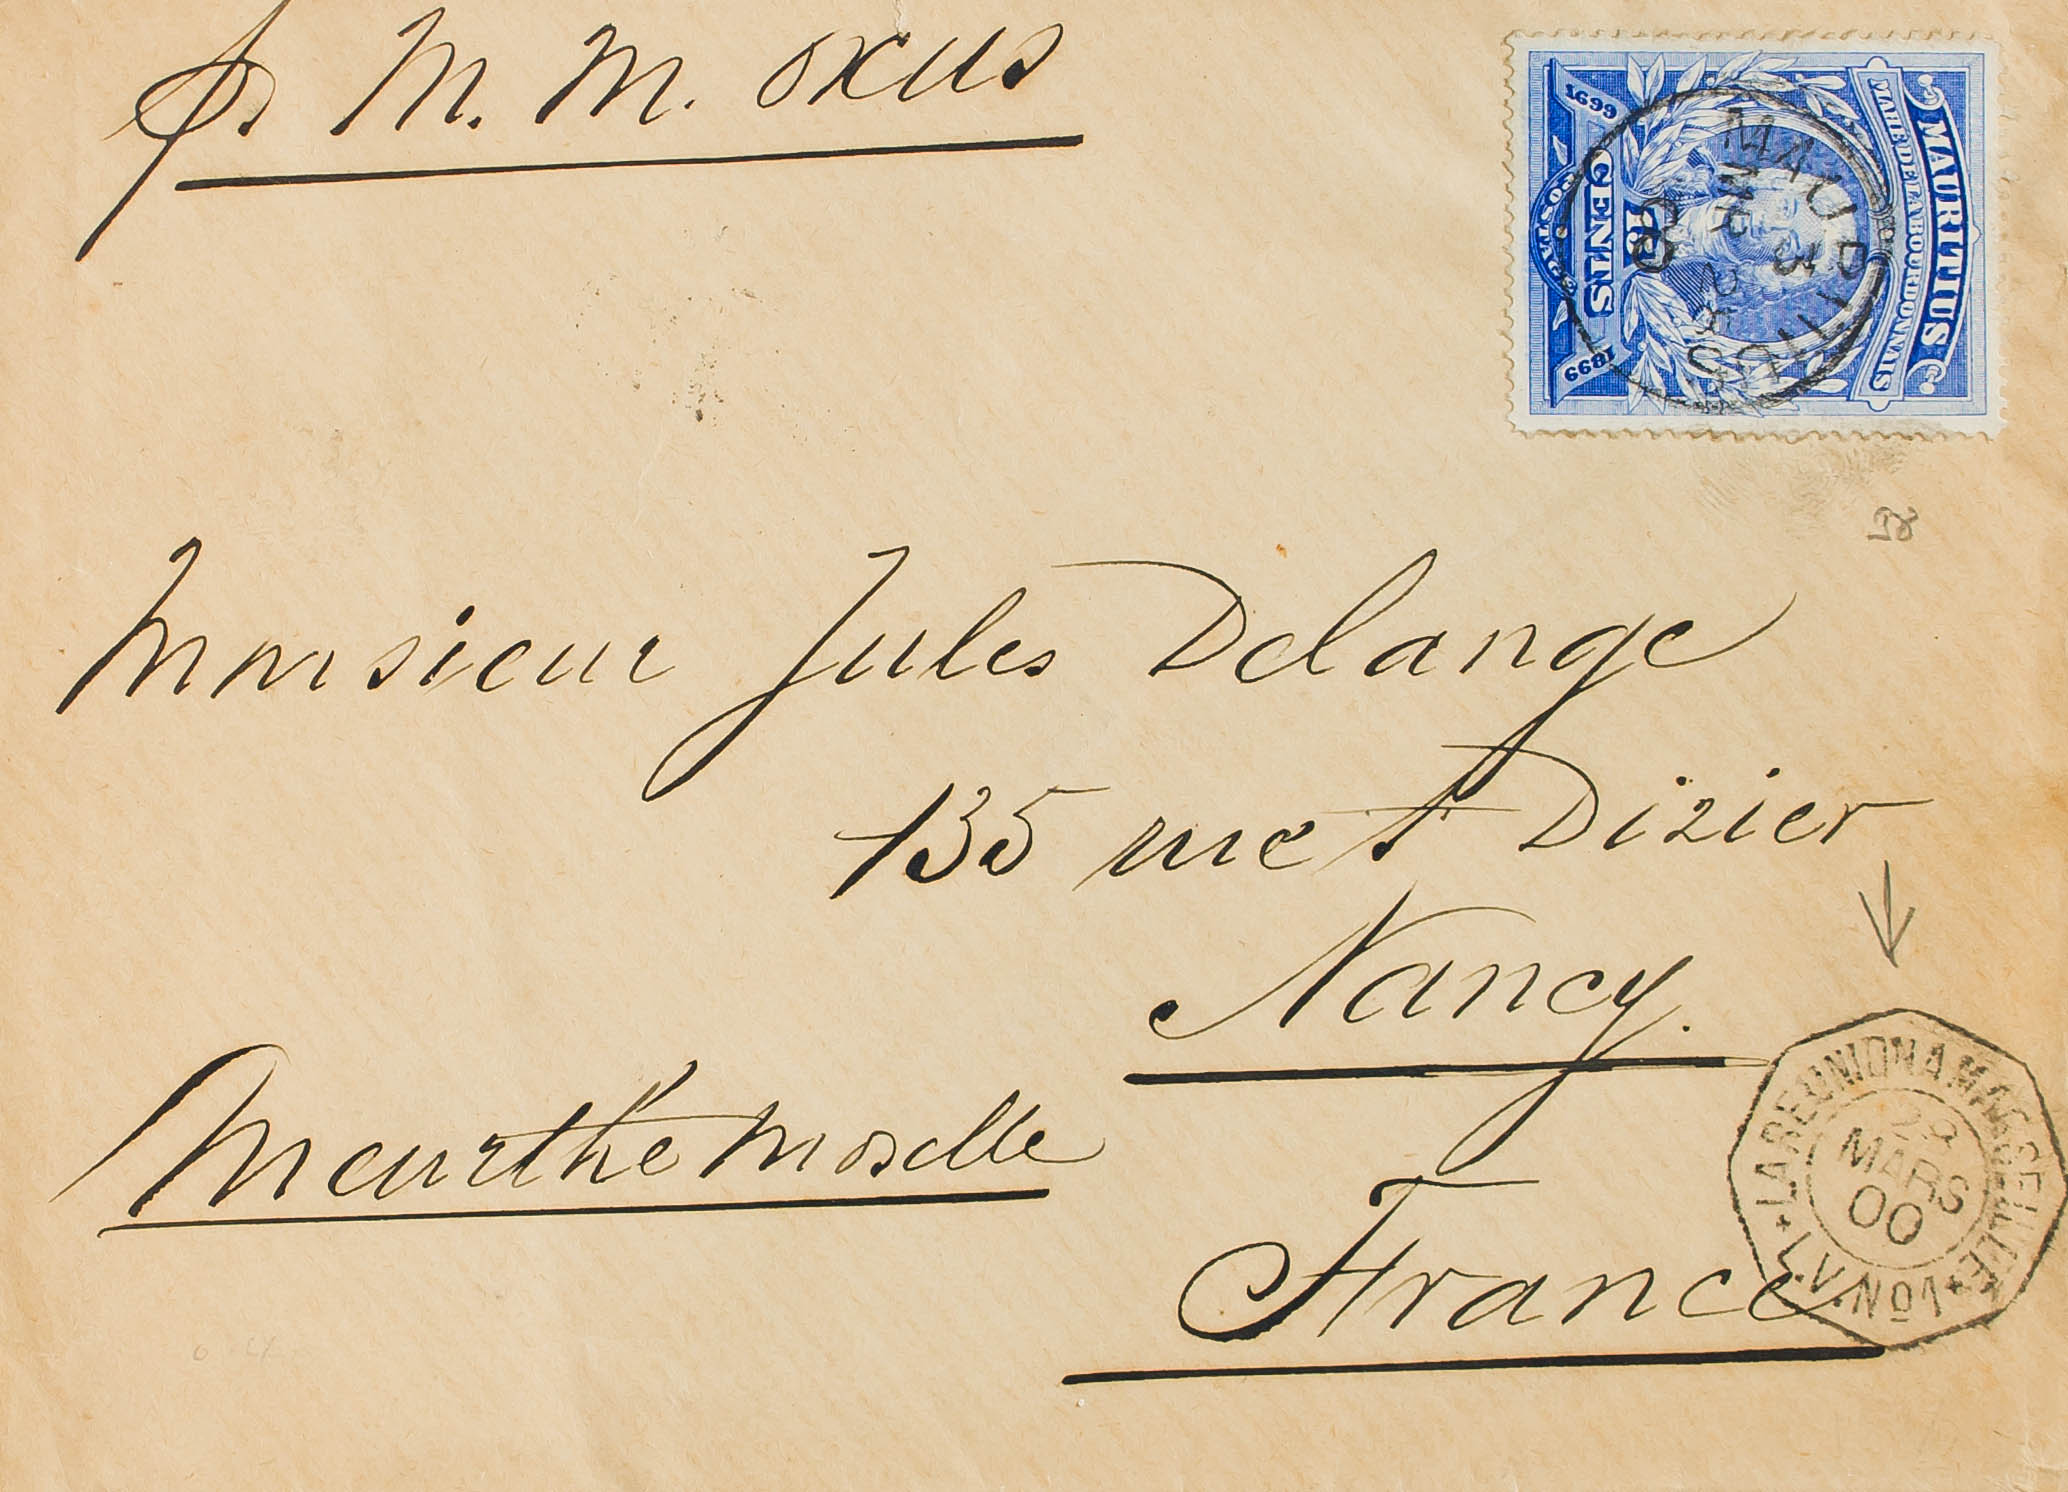 pr M. M. Oxus
MAURITIUS
MAHÉ DE LABOURDONNAIS
1699
15
CENTS
POSTAGE
1899
MAURITIUS
MR 29
00
58
Monsieur Jules Delange
135 rue St Dizier
Nancy.
Meurthe Moselle
France
LA REUNION A MARSEILLE
29
MARS
00
L.V. No 1